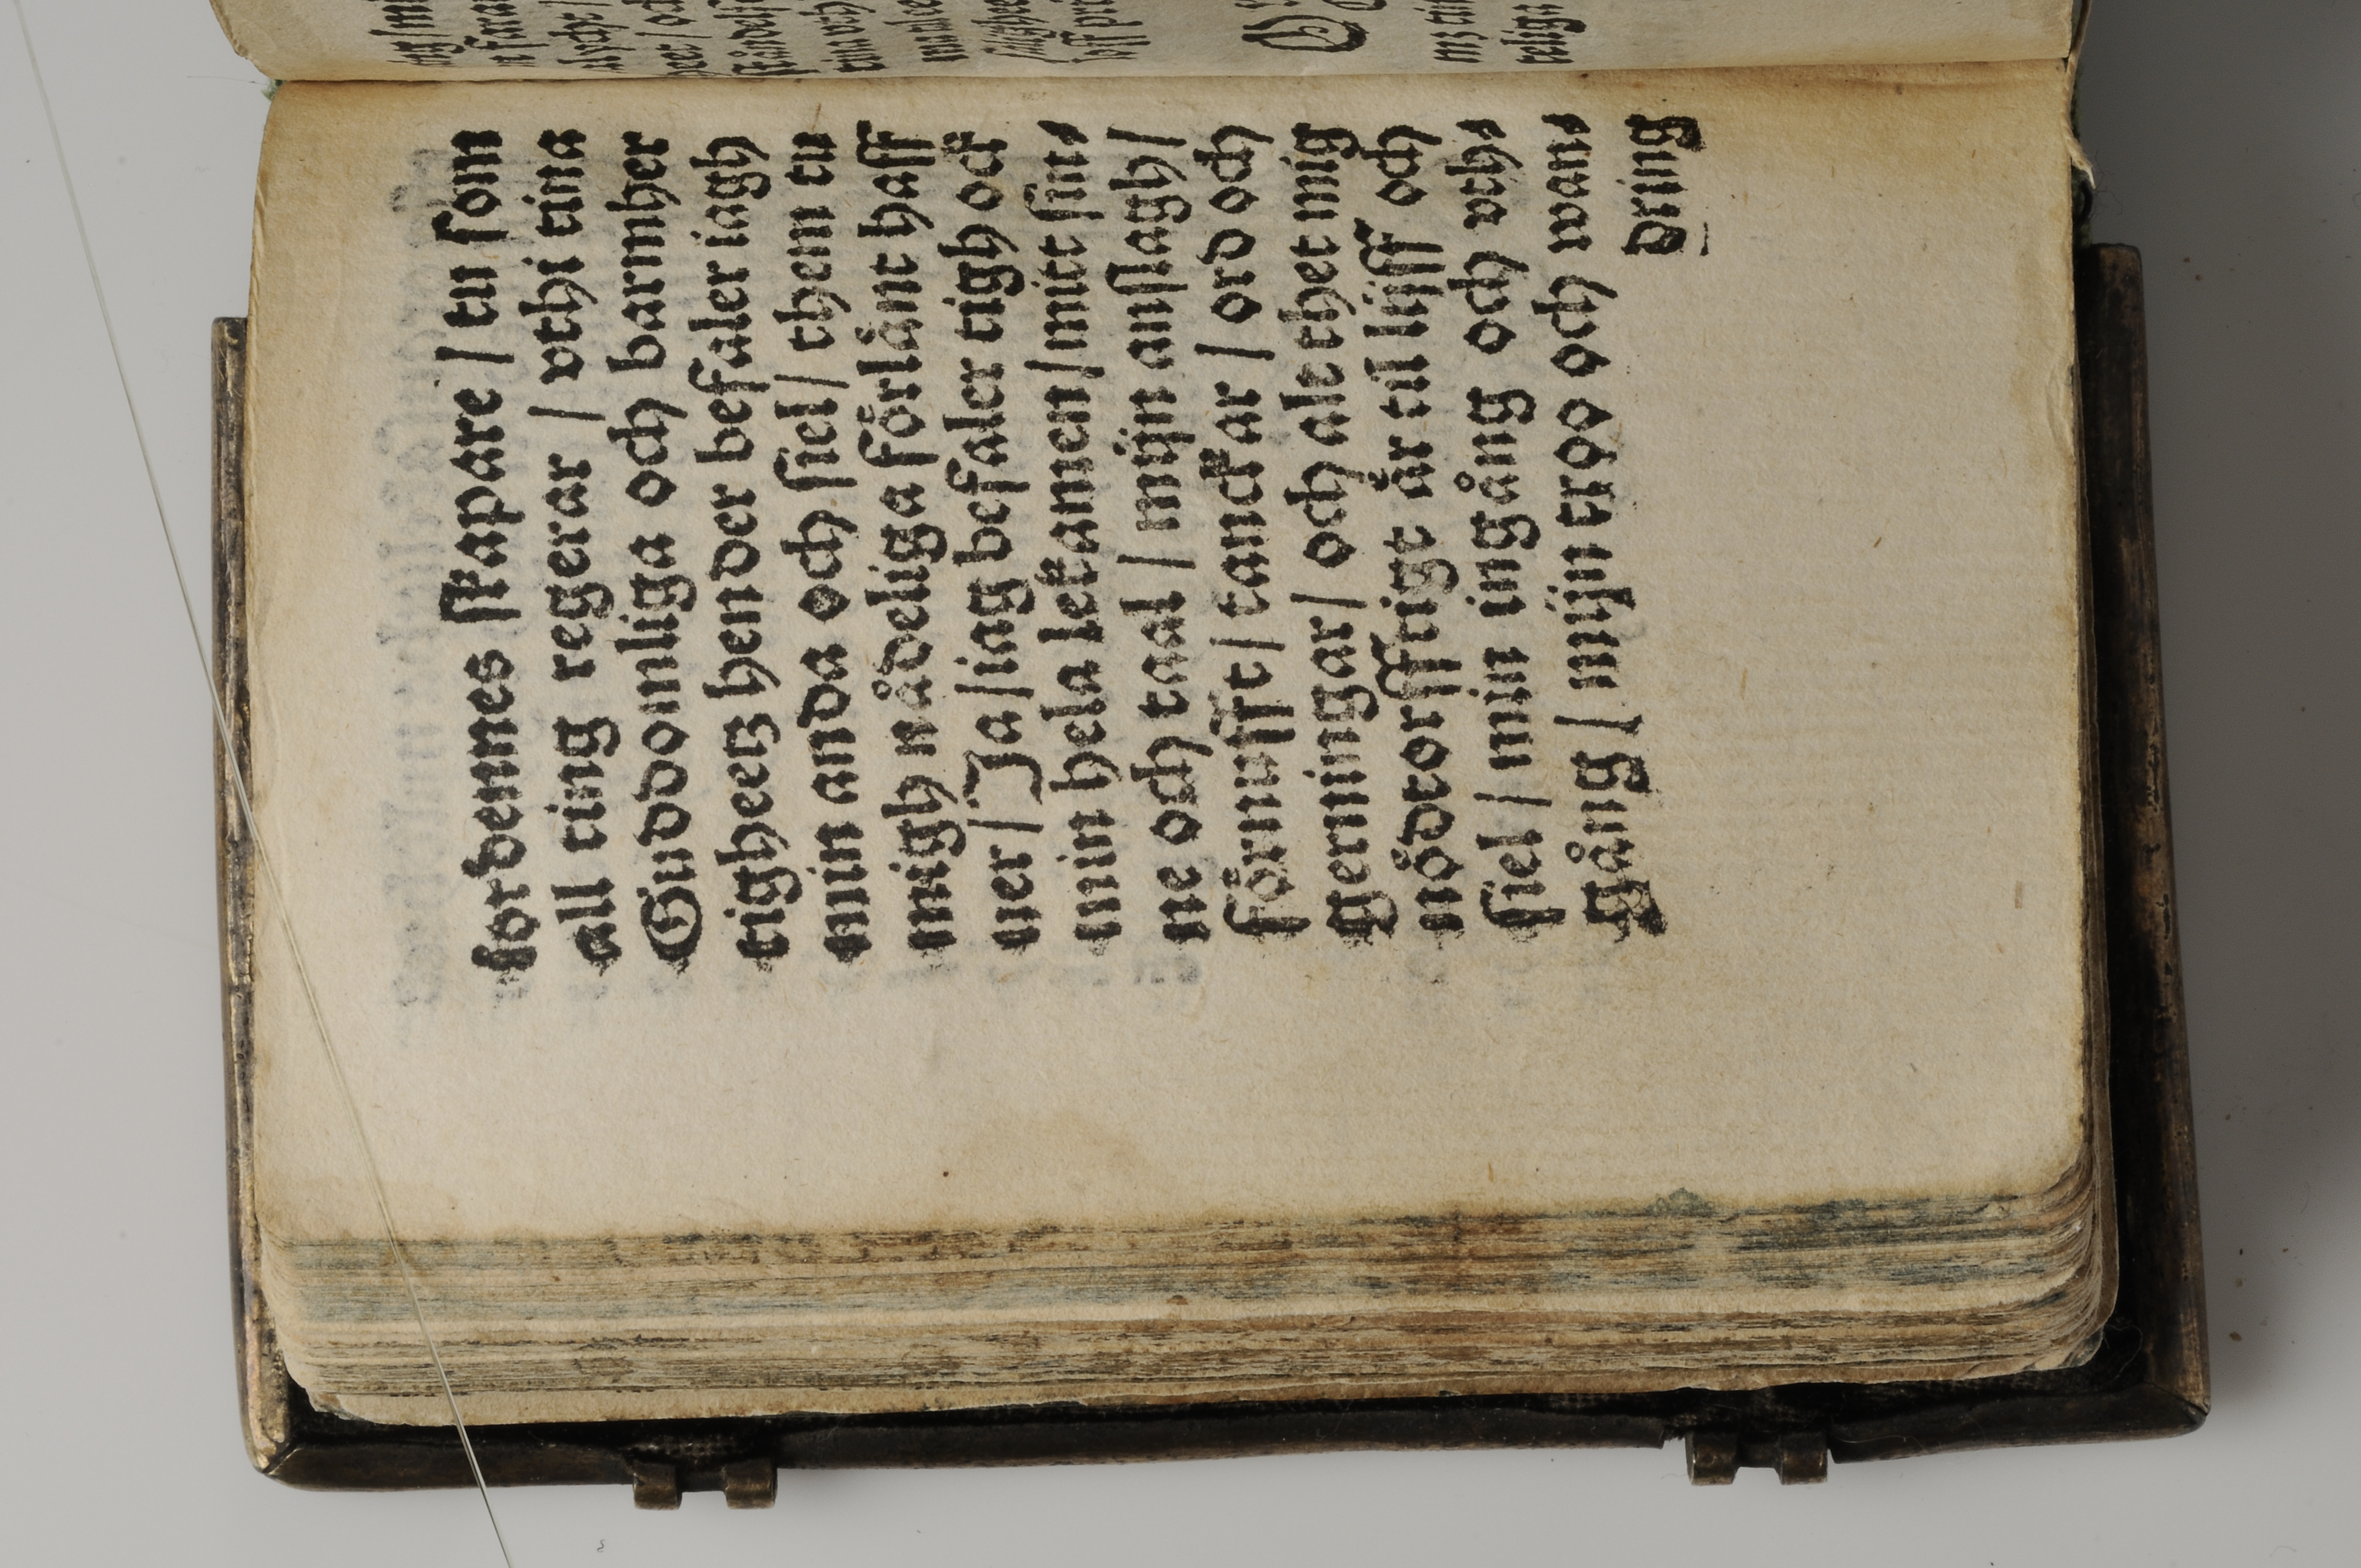 Jordennes skapare / tu som
all ting regerar / vthi tina
Guddomliga och barmher
tigheetz hender befaler iagh
min anda och siel / them tu
migh nådeliga förlänt haff
uer / Ja / iag befaler tigh ock
min hela lekamen / mitt sin⸗
ne och taal / mijn anslagh /
förnufft / tanckar / ord och
gerningar / och alt thet mig
nödtorfftigt är til lijff och
siel / min ingång och vth⸗
gång / mijn troo och wan⸗
dring